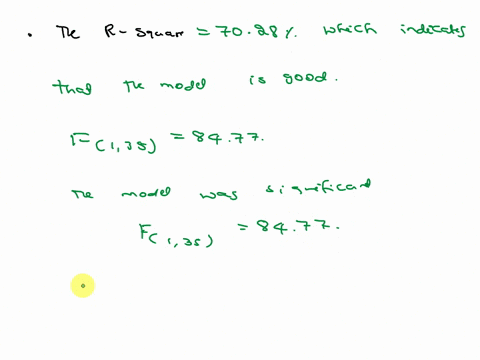 • The R-Square = 70.28%. which indicates
that the model is good.
F(1,35) = 84.77.
The model was significant
F(1,35) = 84.77.